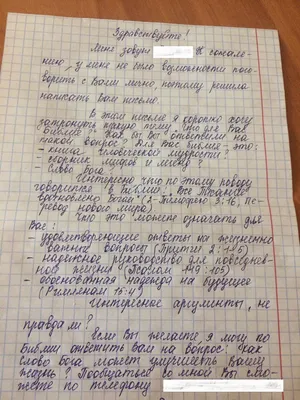 Здравствуйте!
Меня зовут К сожале-
нию у меня не было возможности пого-
ворить с Вами лично, поэтому решила
написать Вам письмо.
В этом письме я коротко хочу
затронуть такую тему: "Что для Вас
Библия?" Как бы Вы ответили на
такой вопрос? Для Вас Библия - это:
- книга человеческой мудрости?
- сборник мифов и легенд?
- Слово Бога?
Интересно, что по этому поводу
говорится в Библии: „Все Писание
вдохновлено Богом" (2-Тимофею 3:16, Пе-
ревод нового мира).
Что это может означать для
Вас:
- удовлетворяющие ответы на жизненно
важные вопросы (Притчи 2:1-5)
- надежное руководство для повседнев-
ной жизни (Псалом 119:105)
- обоснованная надежда на будущее
(Римлянам 15:4)
Интересные аргументы, не
правда ли?
Если Вы желаете, я могу по
Библии ответить Вам на вопрос: как
слово Бога может улучшить Вашу
жизнь? Пообщаться со мной Вы смо-
жете по телефону